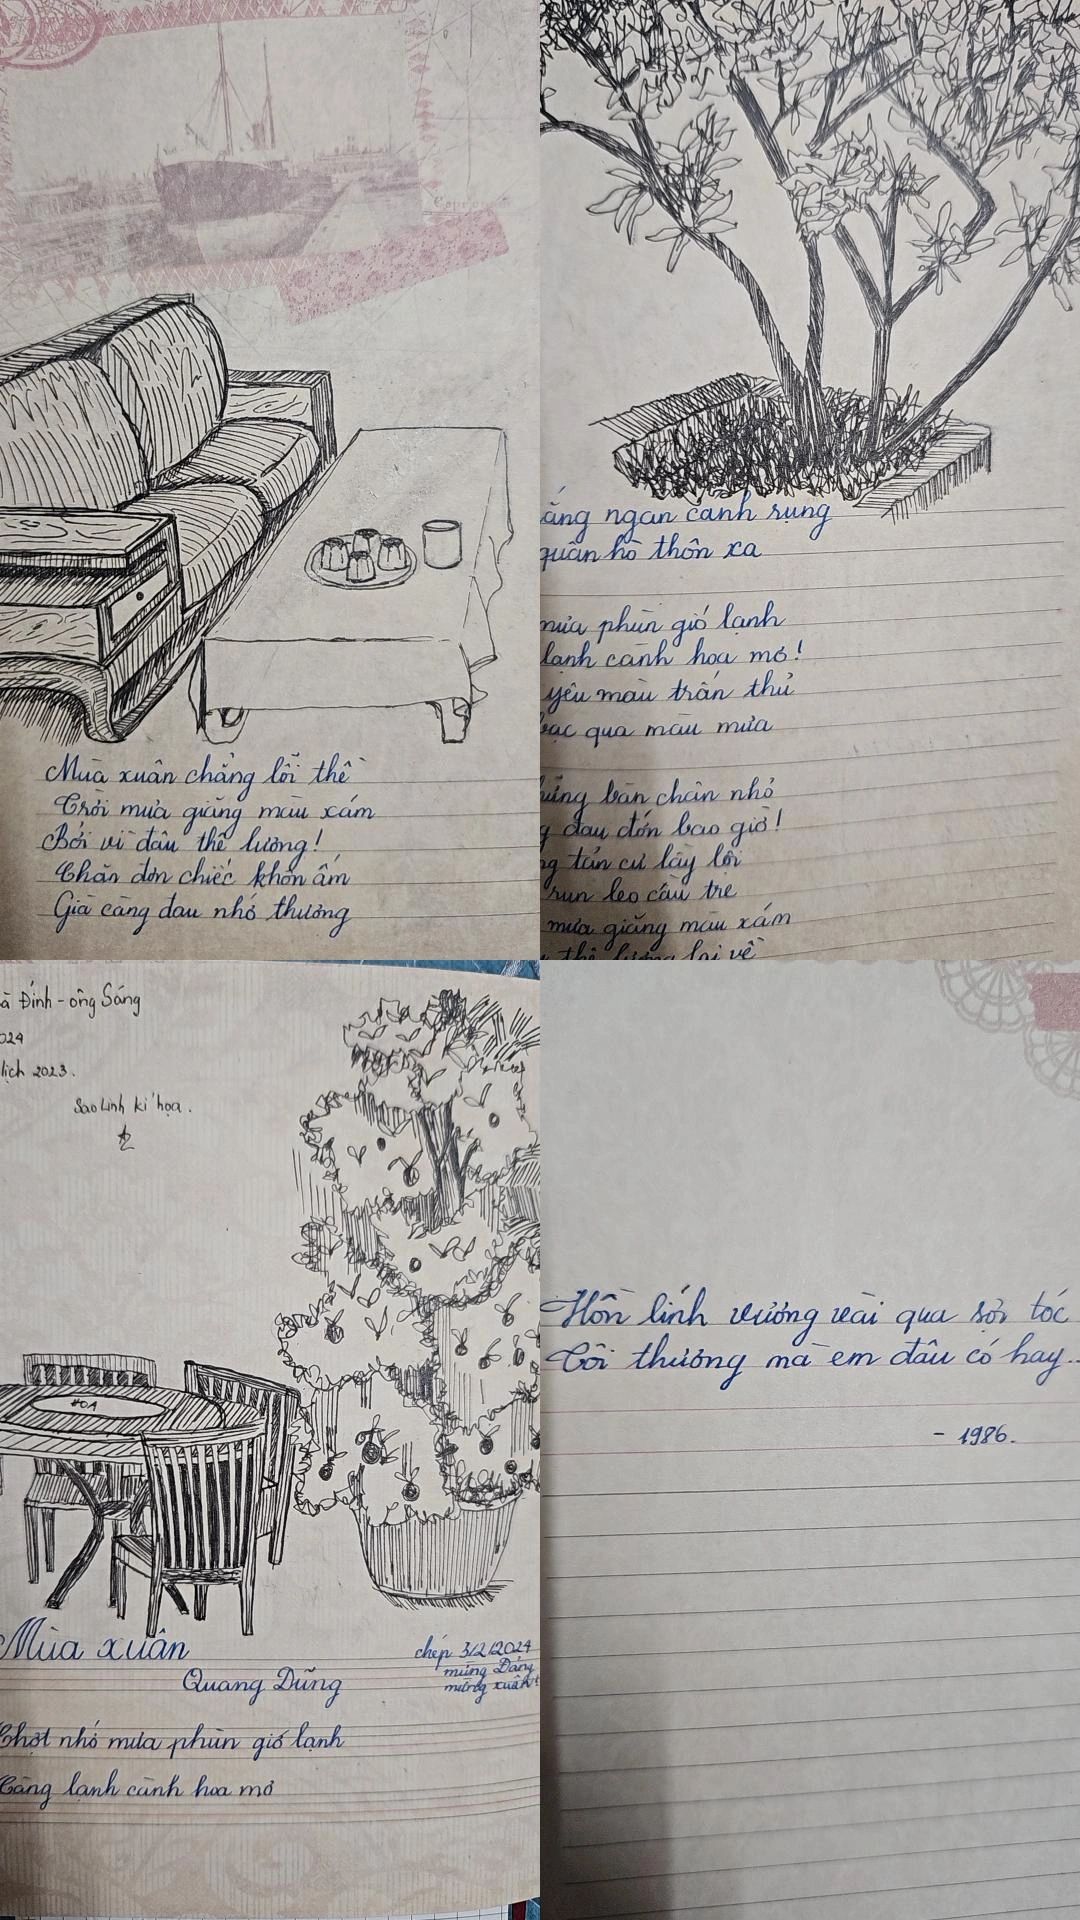 Mùa xuân chẳng lỗi thề
Trời mưa giăng màu xám
Bởi vì đâu thê lương!
Chăn đơn chiếc khôn ấm
Già càng đau nhớ thương
ngàn cành rụng
quân hồ thôn xa
mưa phùn gió lạnh
lạnh cành hoa mơ!
yêu màu trấn thủ
bạc qua màu mưa
bàn chân nhỏ
đau đớn bao giờ!
tản cư lầy lội
run leo cầu tre
mưa giăng màu xám
thê lương lại về
Đính - ông Sáng
lịch 2023.
Sao Linh kí họa.
Mùa xuân
Quang Dũng
chép 3/2/2024
mừng Đảng
mừng xuân!
Chợt nhớ mưa phùn gió lạnh
Càng lạnh cành hoa mơ
Hồn lính vương vài qua sợi tóc
Tôi thương mà em đâu có hay...
- 1986.